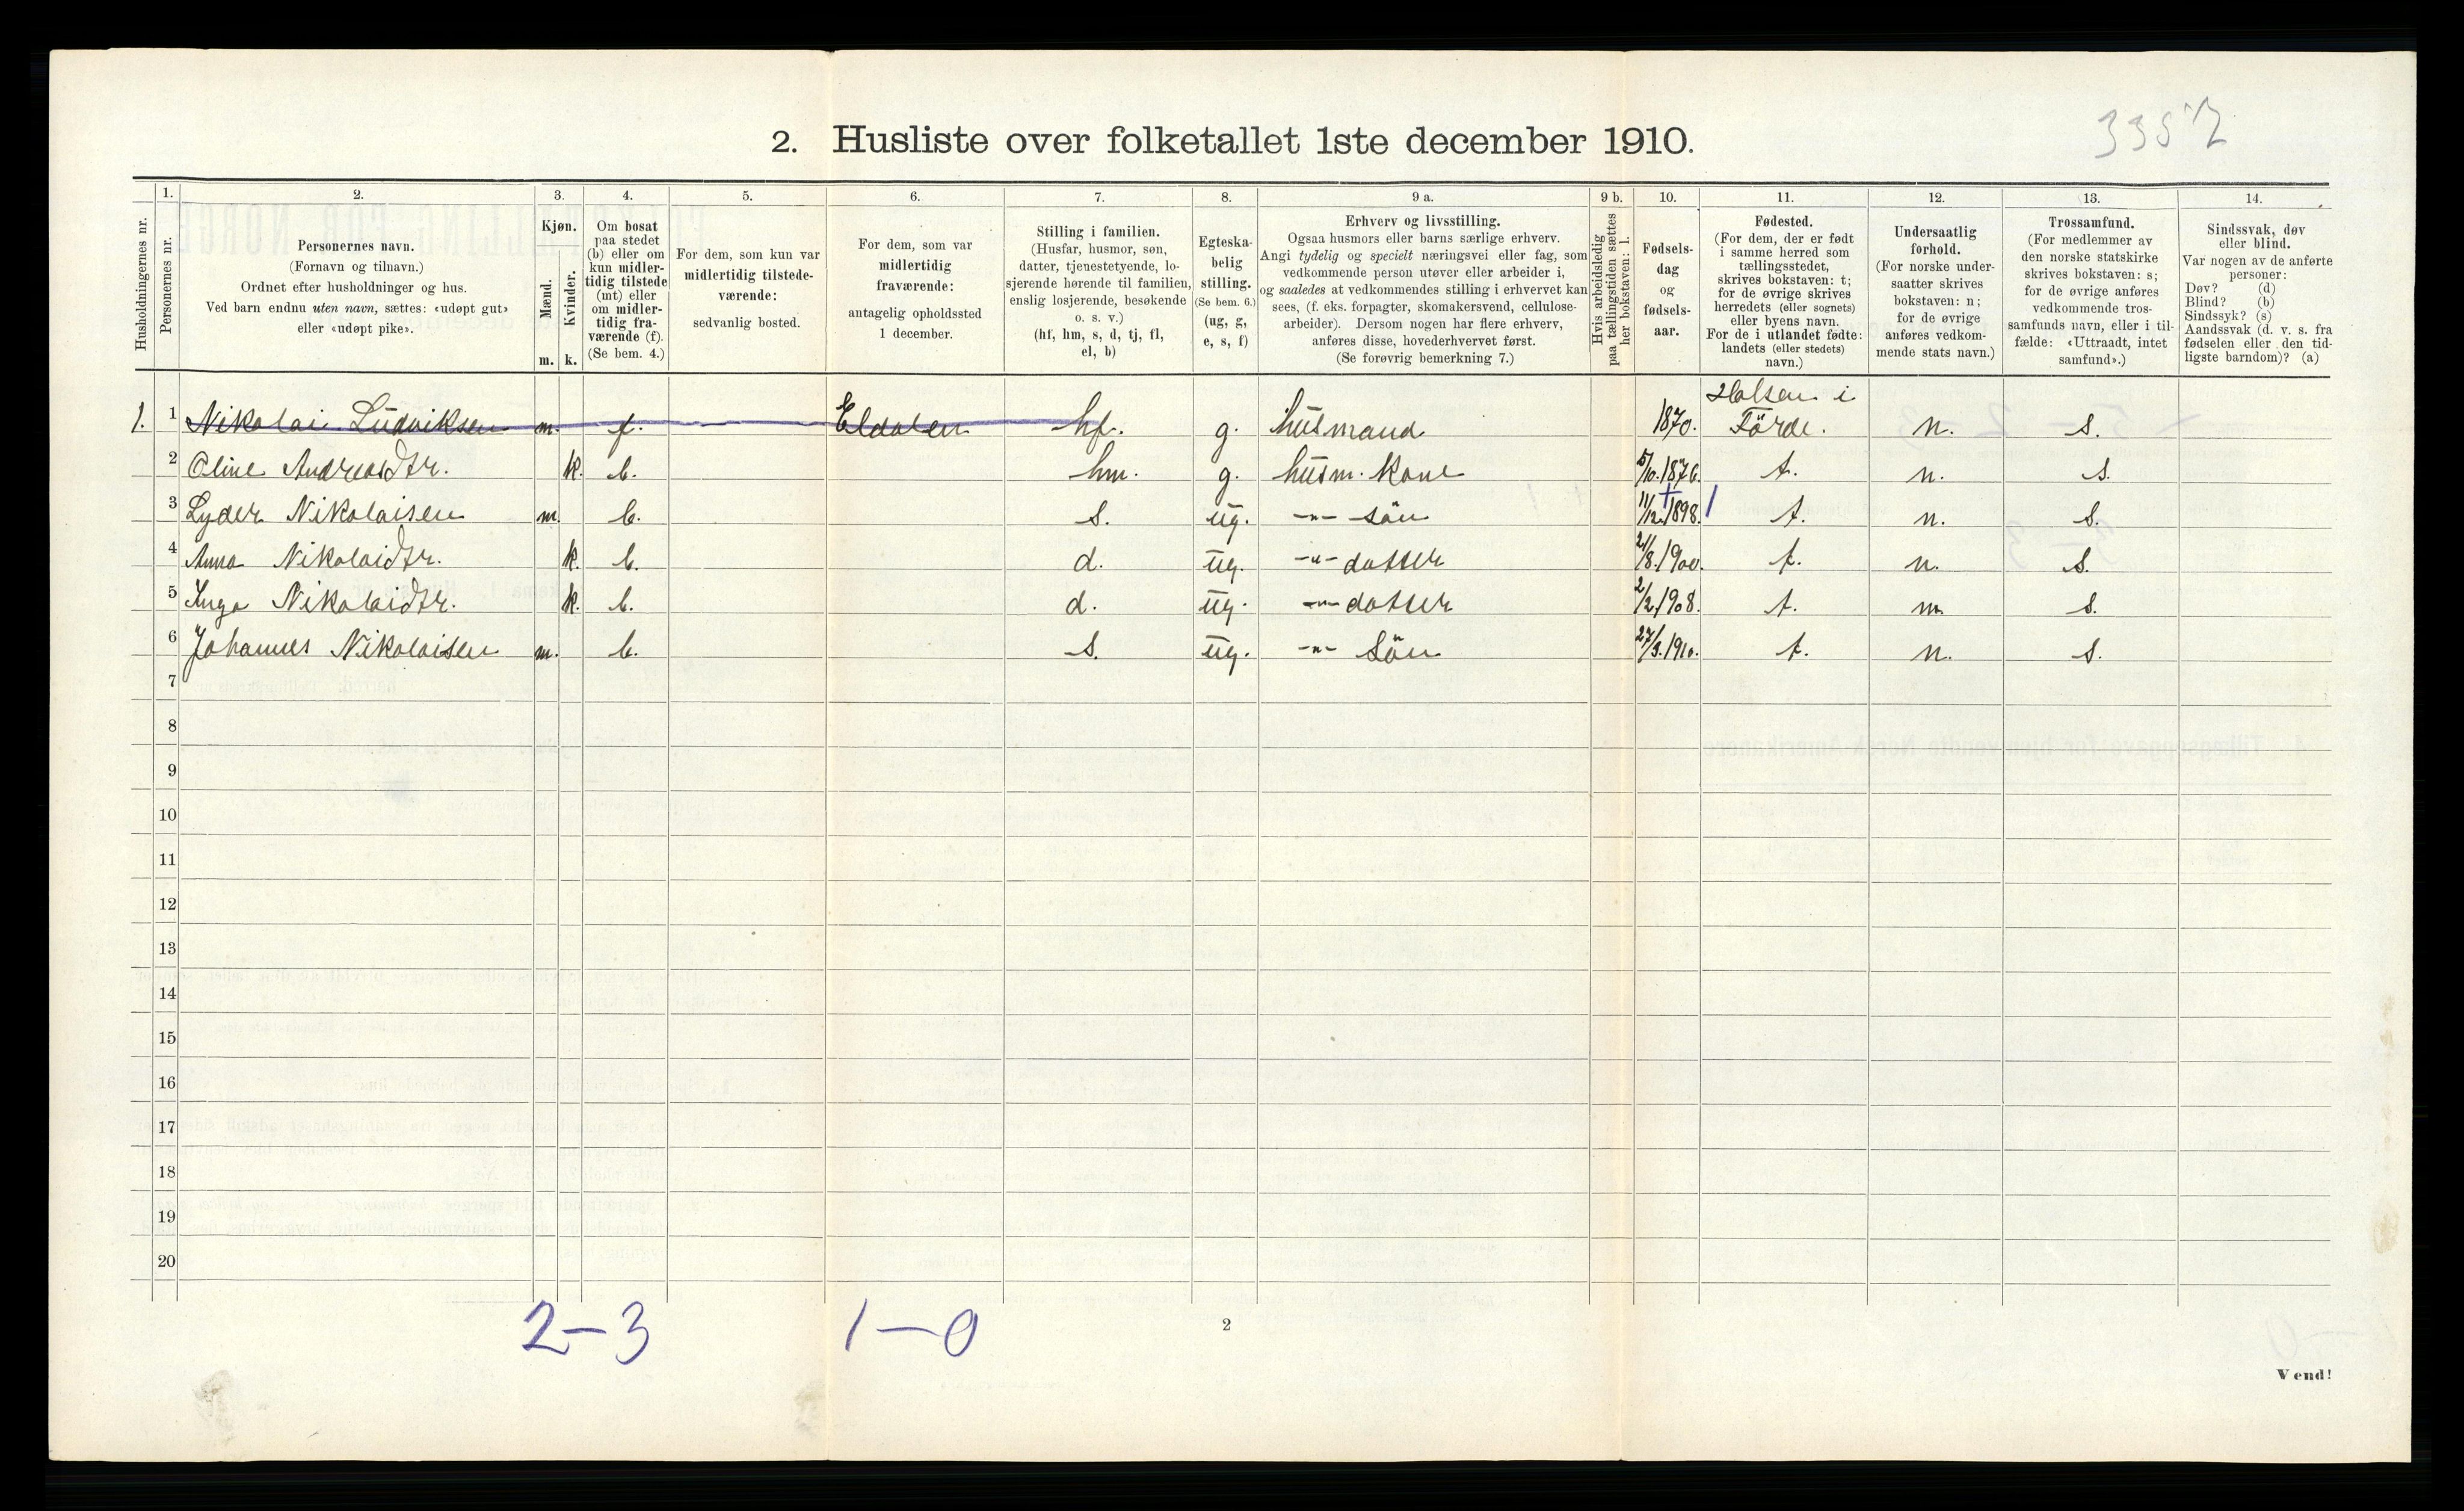 3357
2. Husliste over folketallet 1ste december 1910.
Husholdningernes nr.
1.
Personernes nr.
2.
Personernes navn.
(Fornavn og tilnavn.)
Ordnet efter husholdninger og hus.
Ved barn endnu uten navn, sættes: «udøpt gut»
eller «udøpt pike».
3.
Kjøn.
Mænd.
Kvinder.
m. k.
4.
Om bosat
paa stedet
(b) eller om
kun midler-
tidig tilstede
(mt) eller
om midler-
tidig fra-
værende (f).
(Se bem. 4.)
5.
For dem, som kun var
midlertidig tilstede-
værende:
sedvanlig bosted.
6.
For dem, som var
midlertidig
fraværende:
antagelig opholdssted
1 december.
7.
Stilling i familien.
(Husfar, husmor, søn,
datter, tjenestetyende, lo-
sjerende hørende til familien,
enslig losjerende, besøkende
o. s. v.)
(hf, hm, s, d, tj, fl,
el, b)
8.
Egteska-
belig
stilling.
(Se bem. 6.)
(ug, g,
e, s, f)
9 a.
Erhverv og livsstilling.
Ogsaa husmors eller barns særlige erhverv.
Angi tydelig og specielt næringsvei eller fag, som
vedkommende person utøver eller arbeider i,
og saaledes at vedkommendes stilling i erhvervet kan
sees, (f. eks. forpagter, skomakersvend, cellulose-
arbeider). Dersom nogen har flere erhverv,
anføres disse, hovederhvervet først.
(Se forøvrig bemerkning 7.)
9 b.
Hvis arbeidsledig
paa tællingstiden sættes
her bokstaven: l.
10.
Fødsels-
dag
og
fødsels-
aar.
11.
Fødested.
(For dem, der er født
i samme herred som
tællingsstedet,
skrives bokstaven: t;
for de øvrige skrives
herredets (eller sognets)
eller byens navn.
For de i utlandet fødte:
landets (eller stedets)
navn.)
12.
Undersaatlig
forhold.
(For norske under-
saatter skrives
bokstaven: n;
for de øvrige
anføres vedkom-
mende stats navn.)
13.
Trossamfund.
(For medlemmer av
den norske statskirke
skrives bokstaven: s;
for de øvrige anføres
vedkommende tros-
samfunds navn, eller i til-
fælde: «Uttraadt, intet
samfund».)
14.
Sindssvak, døv
eller blind.
Var nogen av de anførte
personer:
Døv? (d)
Blind? (b)
Sindssyk? (s)
Aandssvak (d. v. s. fra
fødselen eller den tid-
ligste barndom)? (a)
1. 1 Nikolai Ludviksen m. f. — Eldalen hf. g. husmand 1870. Holsen i Förde. n. s.
2 Oline Andreasdtr. k. b. hm. g. husm. kone 5/10.1876. t. n. s.
3 Lyder Nikolaisen m. b. s. ug. -"- sön 11/12.1898. t. n. s.
4 Anna Nikolaidtr. k. b. d. ug. -"- datter 21/8.1900. t. n. s.
5 Inga Nikolaidtr. k. b. d. ug. -"- datter 2/2.1908. t. n. s.
6 Johannes Nikolaisen m. b. s. ug. -"- Sön 27/3.1910. t. n. s.
7
8
9
10
11
12
13
14
15
16
17
18
19
20
2-3 1-0
2
Vend!